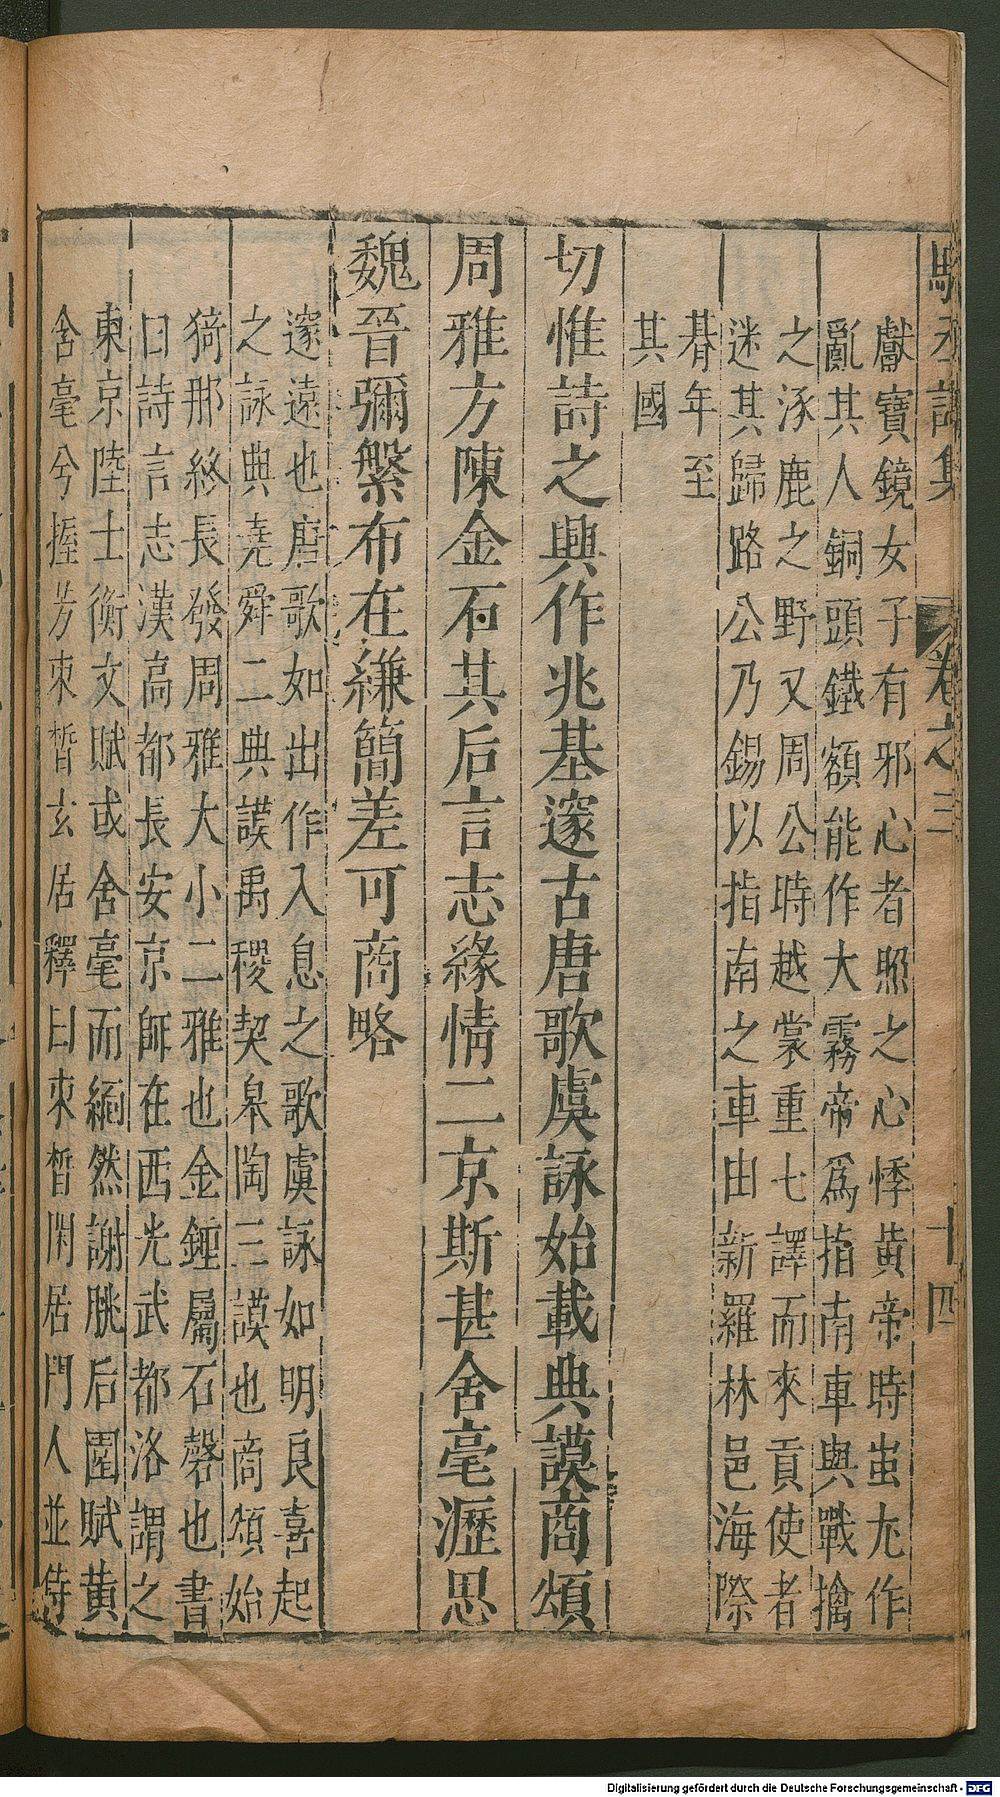 駱丞詩集 卷之三 十四
獻寶鏡女子有邪心者照之心悸黄帝時蚩尤作
亂其人銅頭鐵額能作大霧帝爲指南車與戰擒
之涿鹿之野又周公時越裳重七譯而來貢使者
迷其歸路公乃錫以指南之車由新羅林邑海際
朞年至
其國
切惟詩之興作兆基邃古唐歌虞詠始載典謨商頌
周雅方陳金石其后言志緣情二京斯甚含毫瀝思
魏晉彌繁布在縑簡差可商略
邃遠也唐歌如出作入息之歌虞詠如明良喜起
之詠典堯舜二典謨禹稷契皐陶三謨也商頌始
猗那終長發周雅大小二雅也金鍾屬石磬也書
曰詩言志漢高都長安京師在西光武都洛謂之
東京陸士衡文賦或含毫而緬然謝朓后園賦黄
含毫兮握芳朿晳玄居釋曰朿晳閑居門人並侍
Digitalisierung gefördert durch die Deutsche Forschungsgemeinschaft - DFG